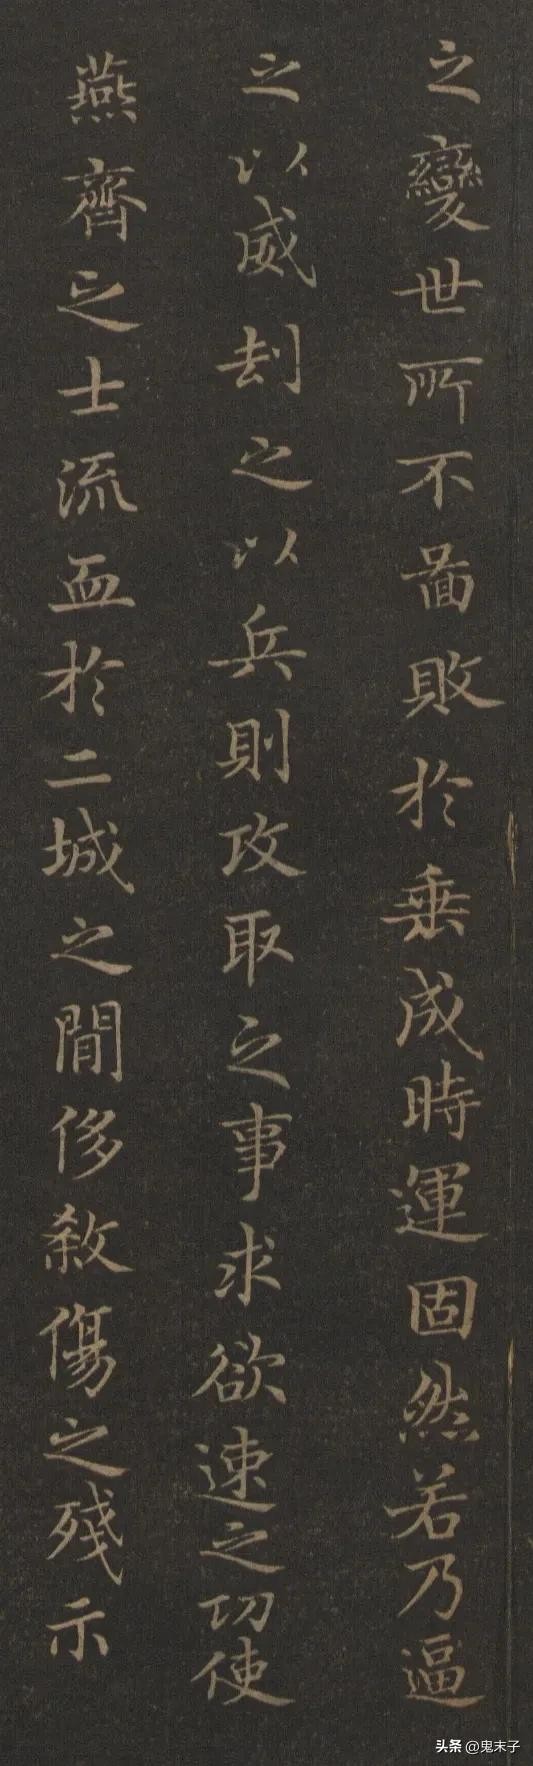 之變世所不啚敗於垂成時運固然若乃逼
之以威刦之以兵則攻取之事求欲速之功使
燕齊之士流血於二城之間侈殺傷之殘示
头条 @鬼末子